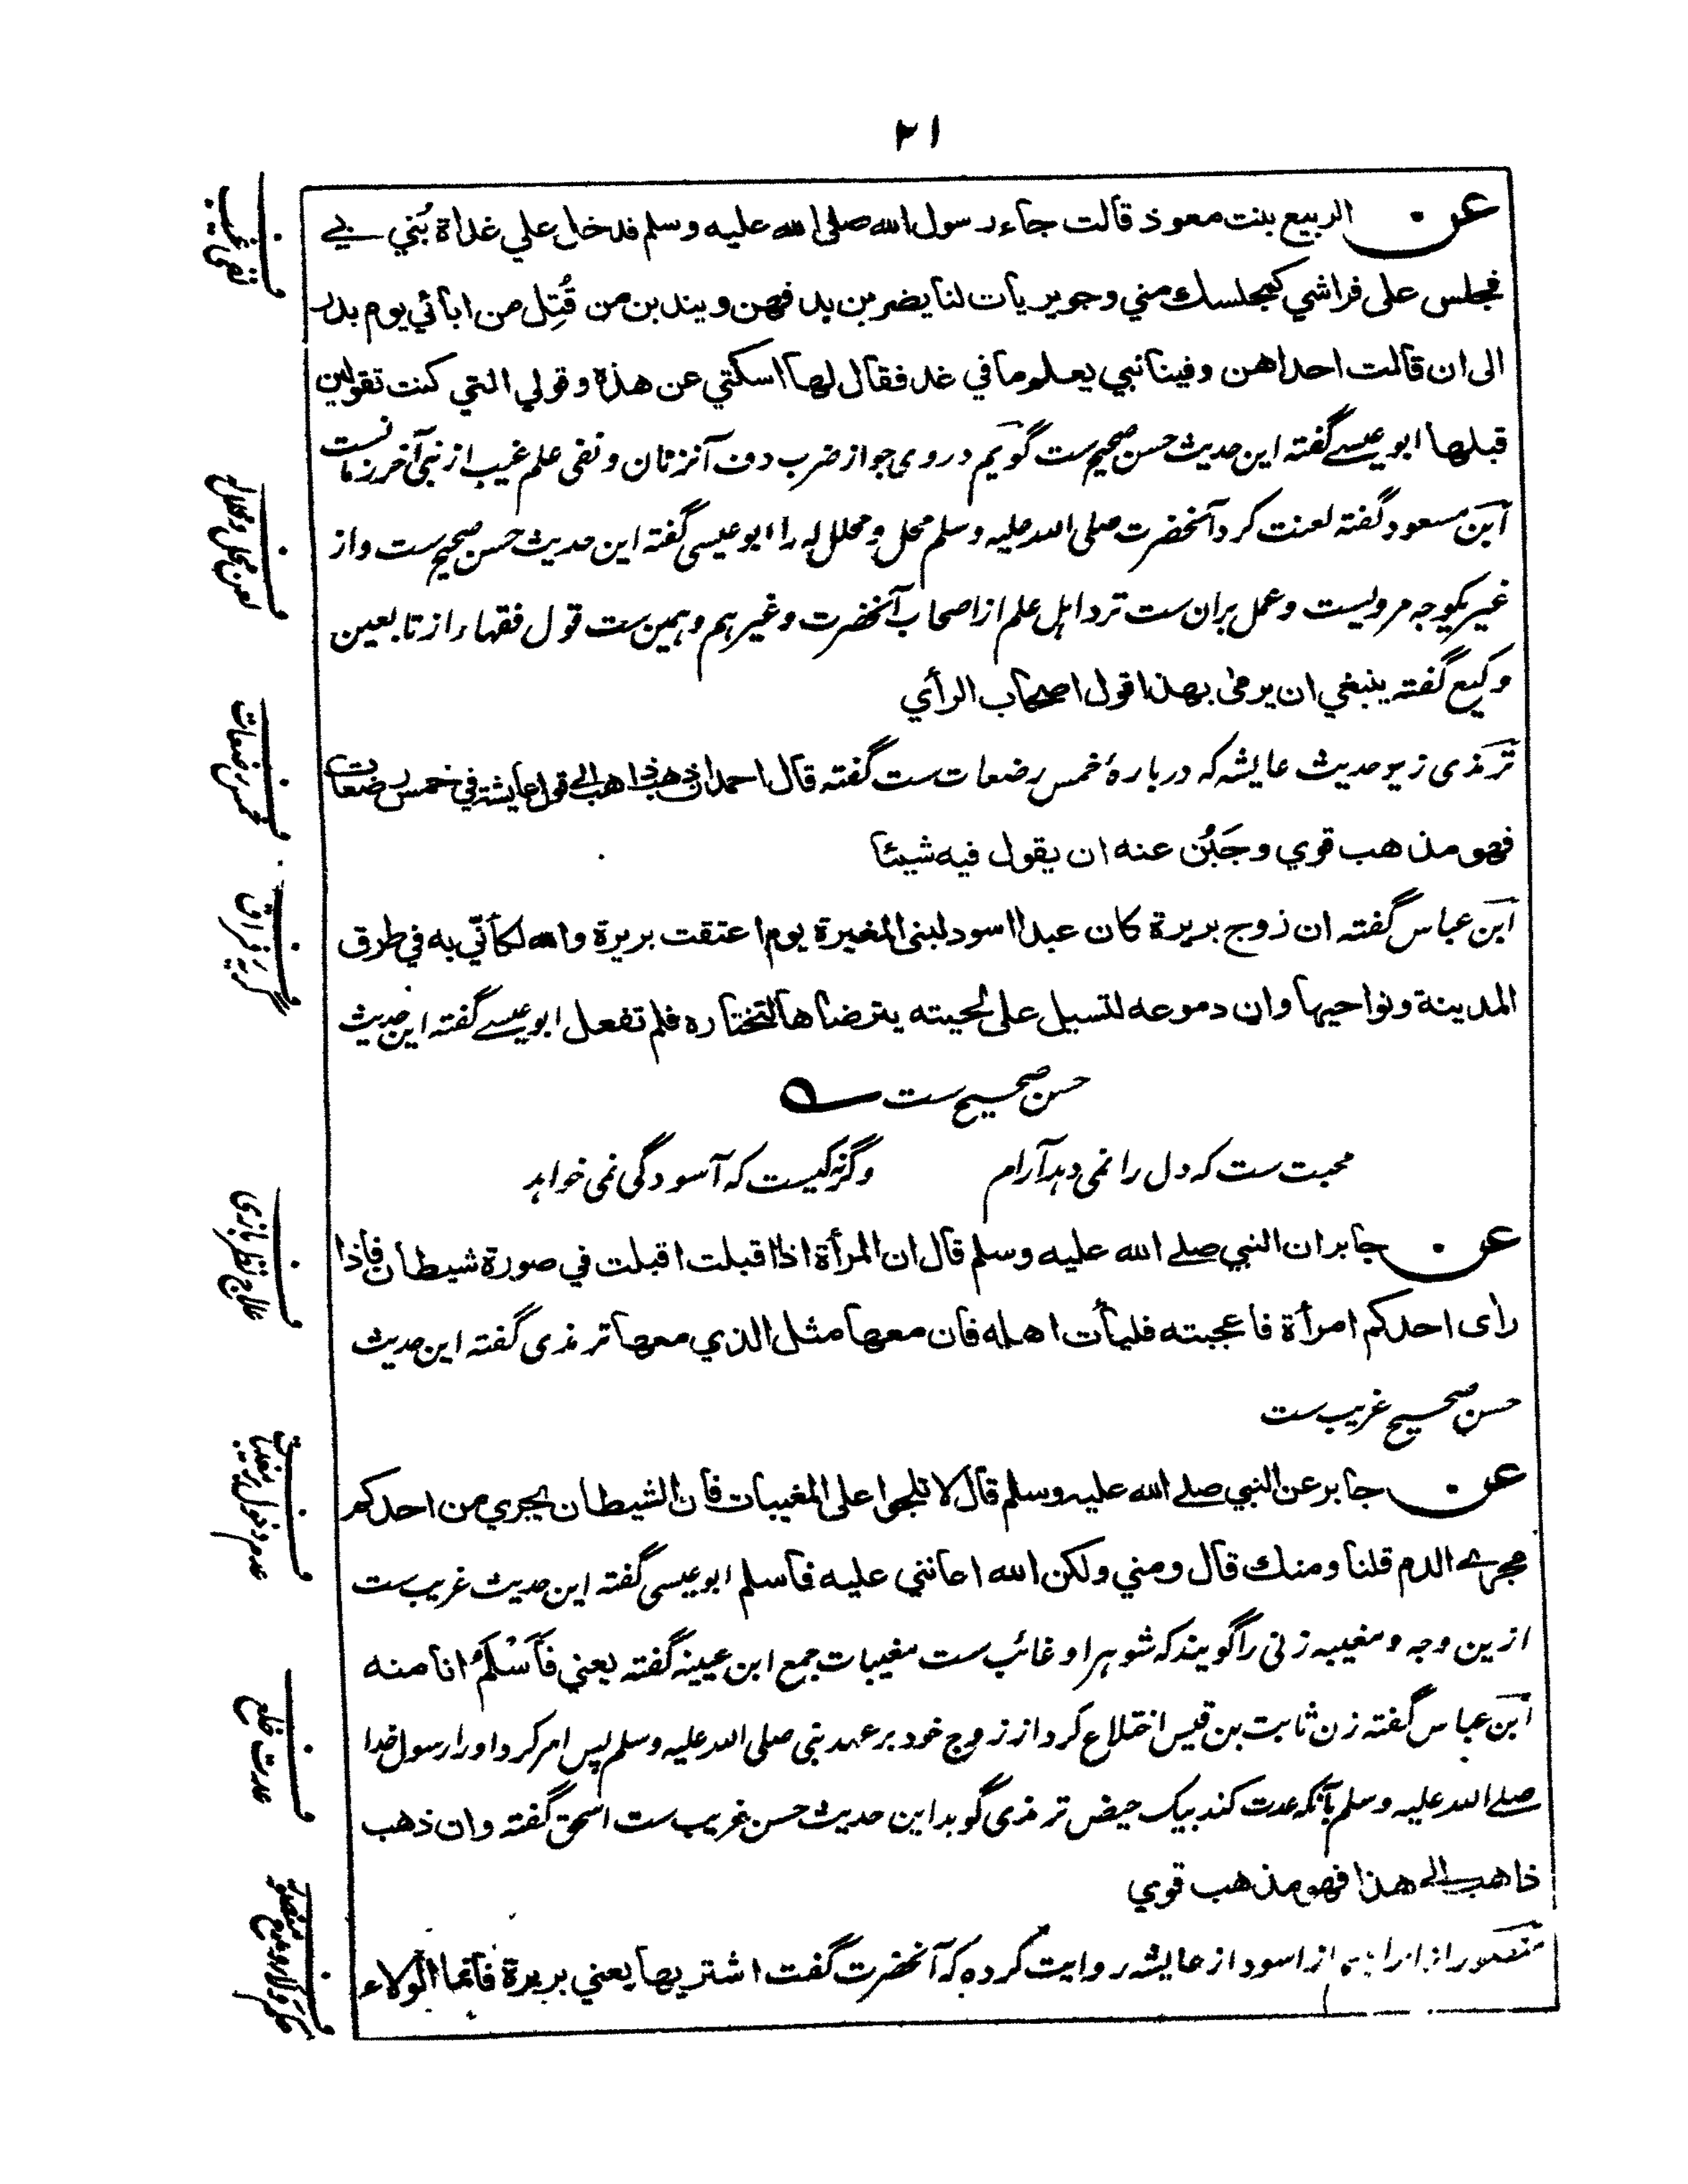 ۲۱
عن الربيع بنت معوذ قالت جاء رسول الله صلى الله عليه وسلم فدخل علي غداة بُني بي
فجلس على فراشي كمجلسك مني وجويريات لنا يضربن بدفهن ويندبن من قُتِل من ابائي يوم بدر
الى ان قالت احداهن وفينا نبي يعلم ما في غد فقال لها اسكتي عن هذه وقولي التي كنت تقولين
قبلها ابو عیسے گفته این حدیث حسن صحیح ست گویم در وی جواز ضرب دف آنزنان و نفی علم غیب از نبی آخر زمانست
ابن مسعود گفته لعنت کرد آنحضرت صلی الله علیه وسلم محل و محلل له را ابو عیسی گفته این حدیث حسن صحیح ست و از
غیر یکوجه مرویست و عمل بران ست نزد اهل علم از اصحاب آنحضرت و غیر هم و همین ست قول فقهاء از تابعین
وکیع گفته ينبغي ان يرمى بهذا قول اصحاب الرأي
ترمذی زیر حدیث عایشه که در بارهٔ خمس رضعات ست گفته قال احمد ان ذهب ذاهب الى قول عايشة في خمس رضعات
فهو مذهب قوي وجَبُن عنه ان يقول فيه شيئا
ابن عباس گفته ان زوج بريرة كان عبدا اسود لبني المغيرة يوم اعتقت بريرة والله لكأني به في طرق
المدينة ونواحيها وان دموعه لتسيل على لحيته يترضاها لتختاره فلم تفعل ابو عیسے گفته این حدیث
حسن صحیح ست
محبت ست که دل را نمی دهد آرام وگرنه کیست که آسودگی نمی خواهد
عن جابر ان النبي صلے الله عليه وسلم قال ان المرأة اذا اقبلت اقبلت في صورة شيطان فاذا
رأى احدكم امرأة فاعجبته فليأت اهله فان معها مثل الذي معها ترمذی گفته این حدیث
حسن صحیح غریب ست
عن جابر عن النبي صلے الله عليه وسلم قال لا تلجوا على المغيبات فان الشيطان يجري من احدكم
مجرے الدم قلنا ومنك قال ومني ولكن الله اعانني عليه فاسلم ابو عیسی گفته این حدیث غریب ست
ازین وجه و مغیبه زنی را گویند که شوهر او غائب ست مغیبات جمع ابن عیینه گفته يعني فَأَسْلَمُ انا منه
ابن عباس گفته زن ثابت بن قیس اختلاع کرد از زوج خود بر عهد نبی صلی الله علیه وسلم پس امر کرد او را رسول خدا
صلے الله علیه وسلم بآنکه عدت کند بیک حیض ترمذی گوید این حدیث حسن غریب ست اسحق گفته وان ذهب
ذاهب الے هذا فهو مذهب قوي
منصور از ابراهیم از اسود از عایشه روایت کرده که آنحضرت گفت اشتريها يعني بريرة فانما الولاء
ف نفی علم غیب
ف لعن محل و محلل له
ف خمس رضعات
ف گریه فراق
ف علاج نظر بازی
ف عدم دخول بر مغیبات
ف عدت خلع